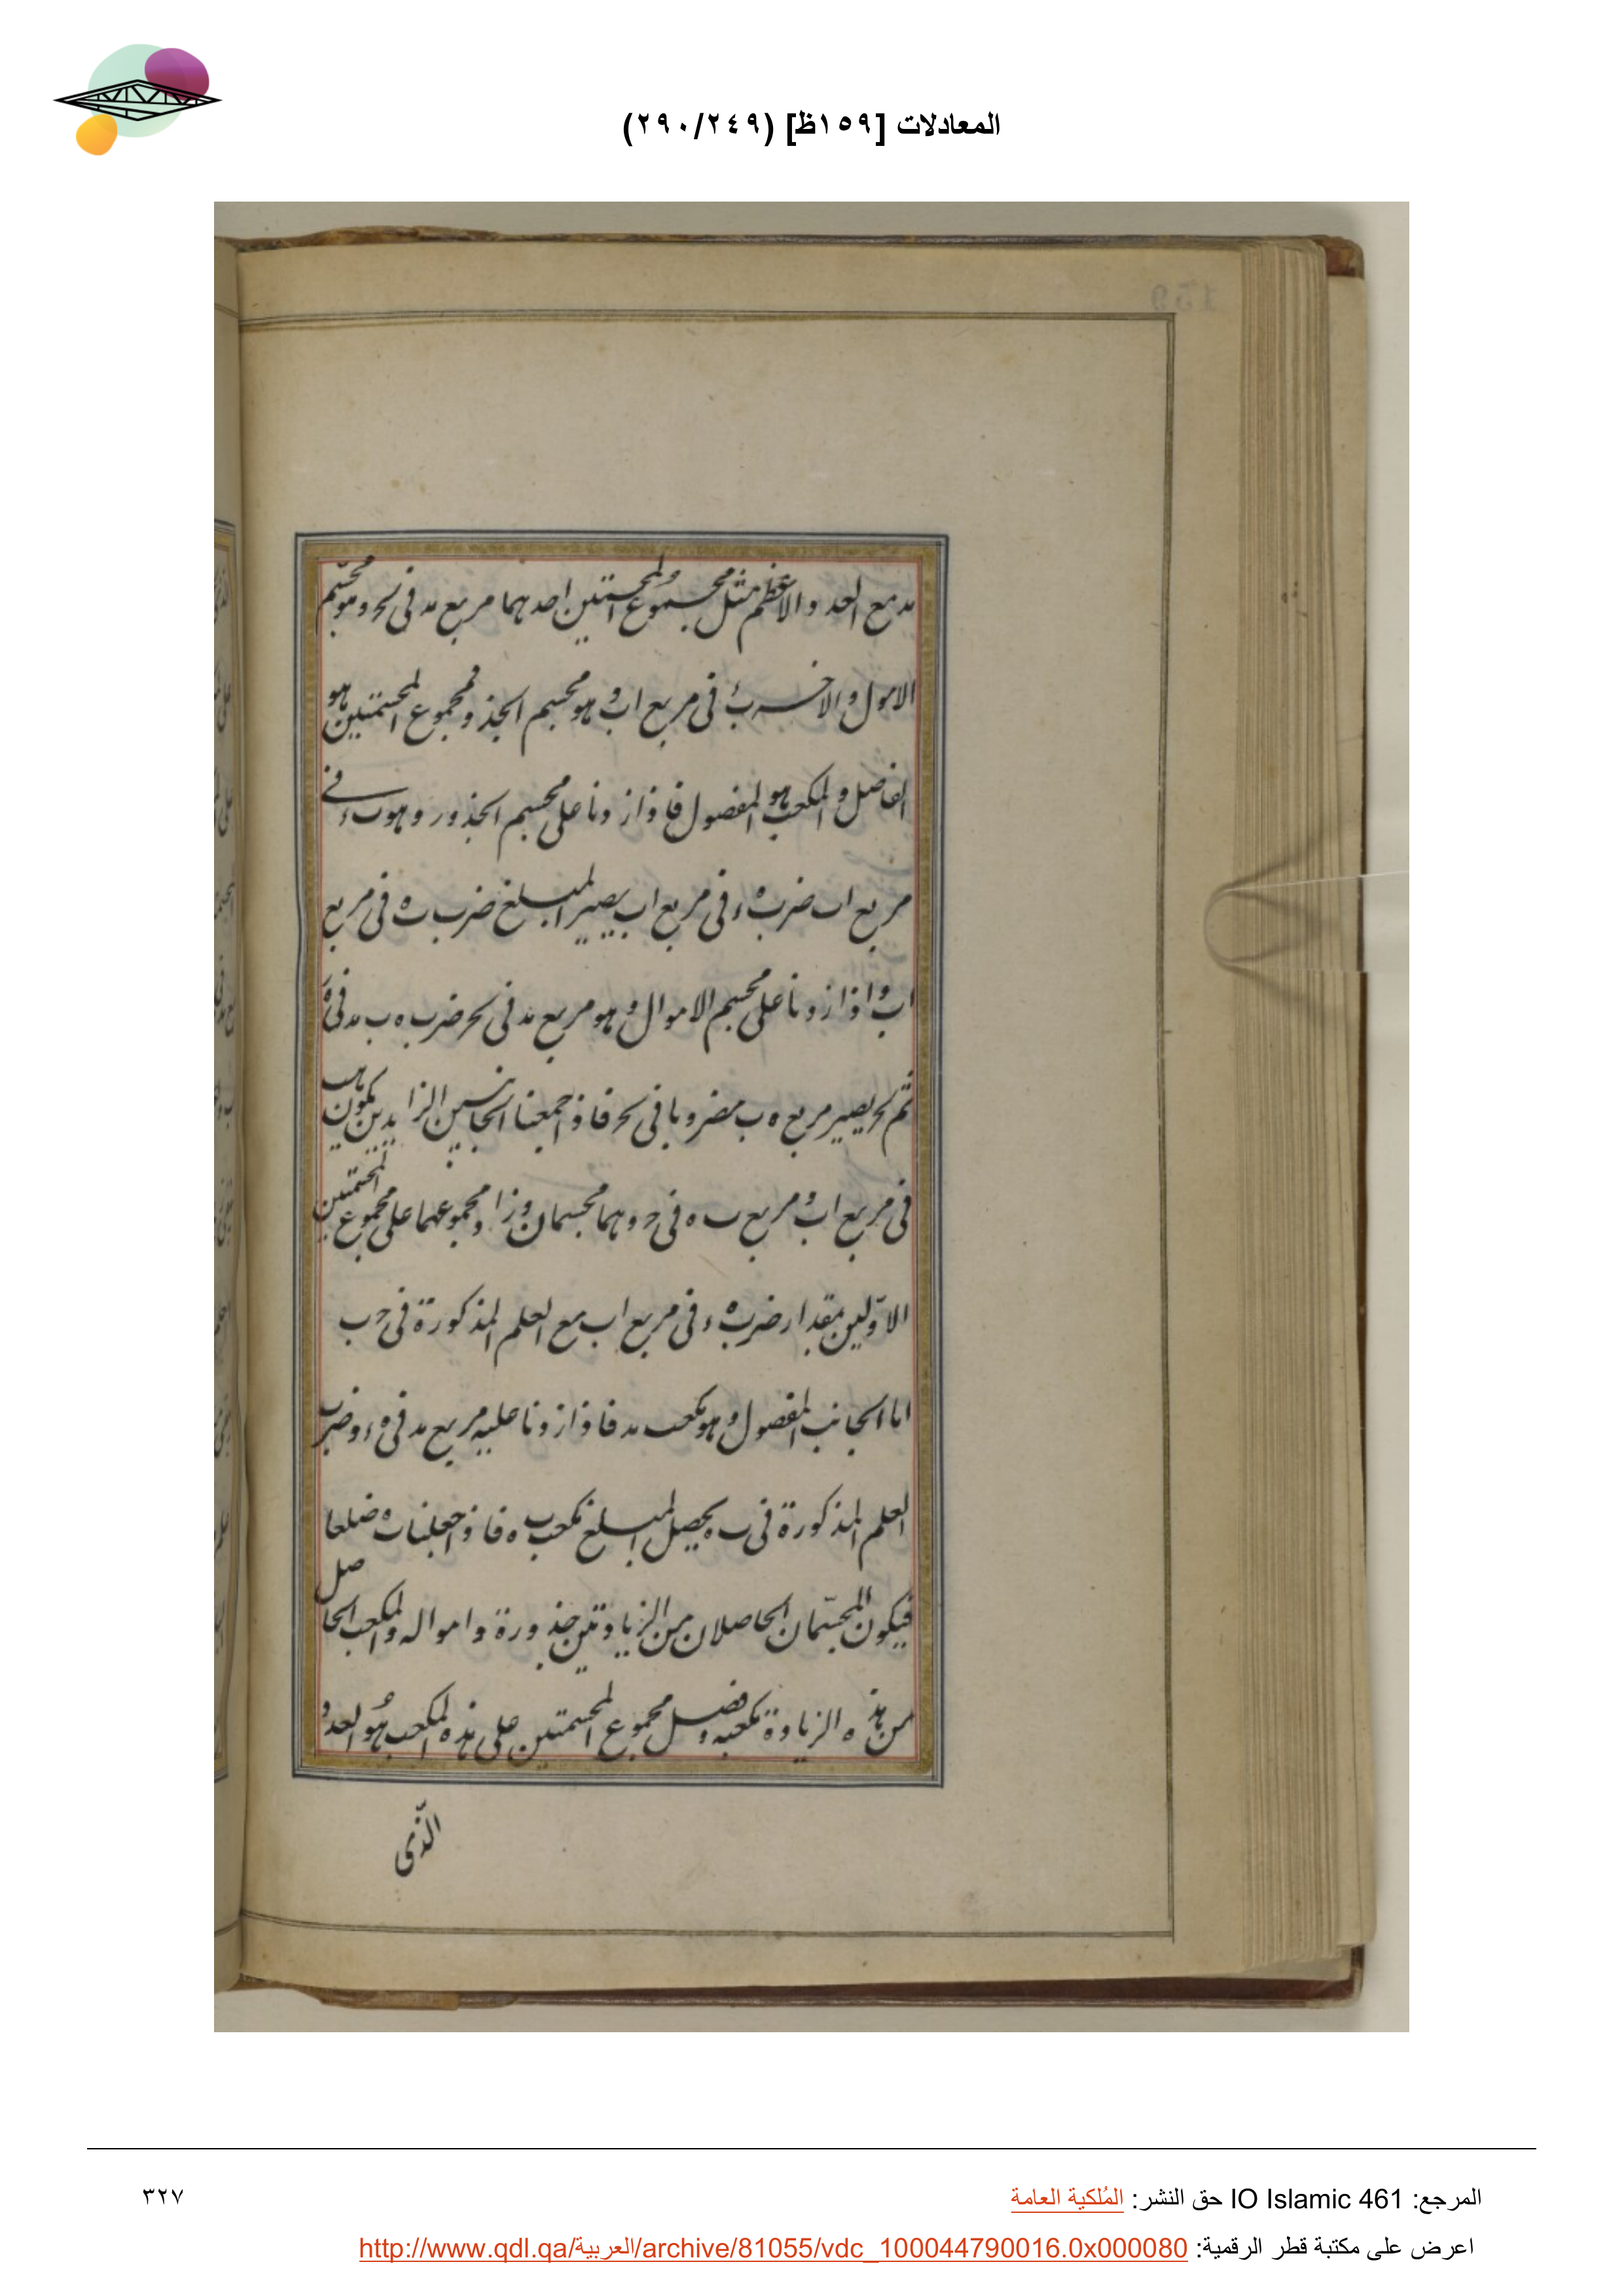 المعادلات [١٥٩ظ] (٢٩٠/٢٤٩)
مد مع العدد والاعظم مثل مجموع المجسمتين احدهما مربع مد فى لحر وهو مجسم
الاموال والاخر ب‍ء فى مربع اب وهو مجسم الجذور ومجموع المجسمتين هو
الفاضل والمكعب هو المفضول فاذا زدنا على مجسم الجذور وهو ب‍ء فى
مربع اب ضرب ه‍ء فى مربع اب يصير المبلغ ضرب ب‍ه فى مربع
اب واذا زدنا على مجسم الاموال وهو مربع مد فى لحر ضرب ه ب مد فى
ثم لحر يصير مربع ه ب مضروبا فى لحر فاذ اجمعنا الجانبين الزايدين يكون ه‍ب
فى مربع اب و مربع ب ه فى حر وهما مجسمان وزاد مجموعهما على مجموع المجسمتين
الاولين بمقدار ضرب ه‍ء فى مربع اب مع العلم المذكورة فى حر ب
اما الجانب المفضول وهو مكعب مد فاذا زدنا عليه مربع مد فى ه‍ء وضرب
العلم المذكورة فى ب ه يحصل المبلغ مكعب ب ه فاذ اجعلنا ب ه ضلعا
فيكون المجسمان الحاصلان من الزيادتين جذورة وامواله والمكعب الحاصل
من هذه الزيادة مكعبه وفضل مجموع المجسمتين على هذه المكعب هو العدد
الذى
المرجع: IO Islamic 461 حق النشر: المُلكية العامة
٣٢٧
اعرض على مكتبة قطر الرقمية: http://www.qdl.qa/العربية/archive/81055/vdc_100044790016.0x000080